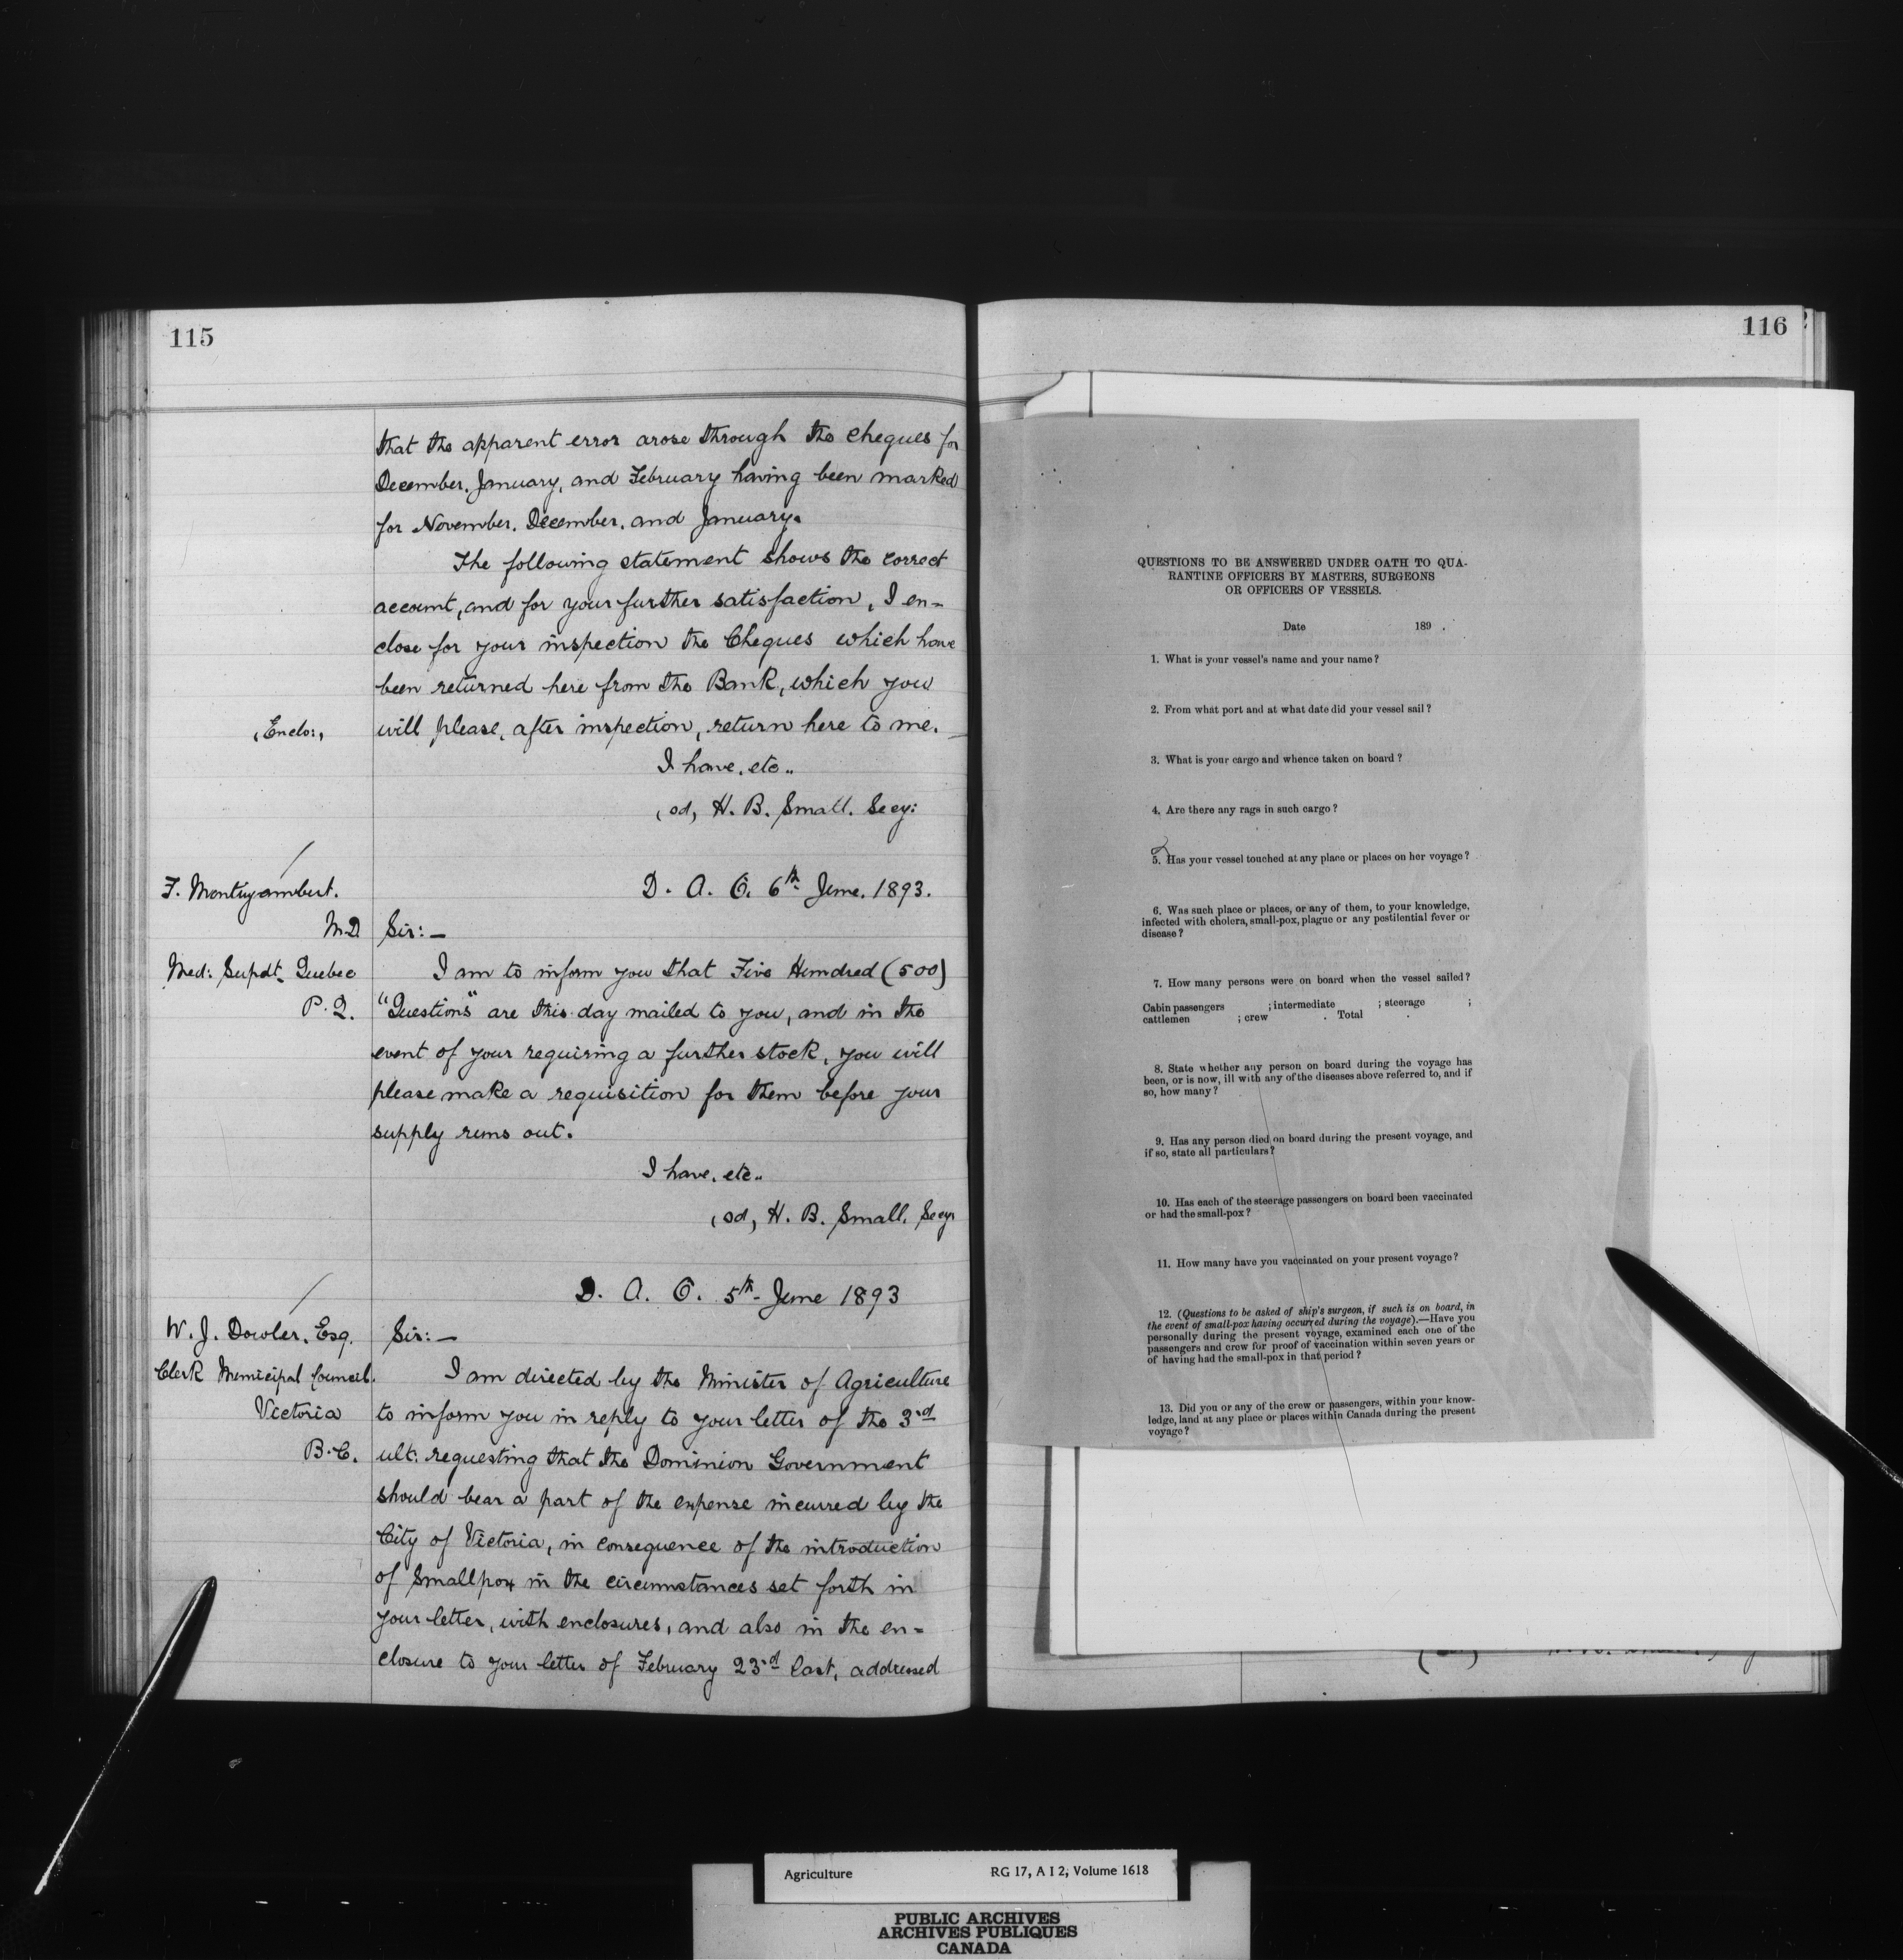 115
that the apparent error arose through the cheques for
December, January, and February having been marked
for November, December, and January.
The following statement shows the correct
account, and for your further satisfaction, I en-
close for your inspection the Cheques which have
been returned here from the Bank, which you
(Enclo:) will please, after inspection, return here to me.
I have, etc..
(sd) H. B. Small. Secy:
F. Montizambert. D. A. O. 6th June. 1893.
M.D. Sir:—
Med: Supdt_ Quebec I am to inform you that Five Hundred (500)
P. Q. "Questions" are this day mailed to you, and in the
event of your requiring a further stock, you will
please make a requisition for them before your
supply runs out.
I have, etc..
(sd) H. B. Small. Secy
D. A. O. 5th June 1893
W. J. Dowler, Esq. Sir:—
Clerk Municipal Council. I am directed by the Minister of Agriculture
Victoria to inform you in reply to your letter of the 3rd
B.C. ult: requesting that the Dominion Government
should bear a part of the expense incurred by the
City of Victoria, in consequence of the introduction
of Smallpox in the circumstances set forth in
your letter, with enclosures, and also in the en-
closure to your letter of February 23rd last, addressed
116
QUESTIONS TO BE ANSWERED UNDER OATH TO QUA-
RANTINE OFFICERS BY MASTERS, SURGEONS
OR OFFICERS OF VESSELS.
Date 189 .
1. What is your vessel's name and your name?
2. From what port and at what date did your vessel sail?
3. What is your cargo and whence taken on board?
4. Are there any rags in such cargo?
5. Has your vessel touched at any place or places on her voyage?
6. Was such place or places, or any of them, to your knowledge,
infected with cholera, small-pox, plague or any pestilential fever or
disease?
7. How many persons were on board when the vessel sailed?
Cabin passengers ; intermediate ; steerage ;
cattlemen ; crew . Total .
8. State whether any person on board during the voyage has
been, or is now, ill with any of the diseases above referred to, and if
so, how many?
9. Has any person died on board during the present voyage, and
if so, state all particulars?
10. Has each of the steerage passengers on board been vaccinated
or had the small-pox?
11. How many have you vaccinated on your present voyage?
12. (Questions to be asked of ship's surgeon, if such is on board, in
the event of small-pox having occurred during the voyage).—Have you
personally during the present voyage, examined each one of the
passengers and crew for proof of vaccination within seven years or
of having had the small-pox in that period?
13. Did you or any of the crew or passengers, within your know-
ledge, land at any place or places within Canada during the present
voyage?
Agriculture RG 17, A I 2, Volume 1618
PUBLIC ARCHIVES
ARCHIVES PUBLIQUES
CANADA